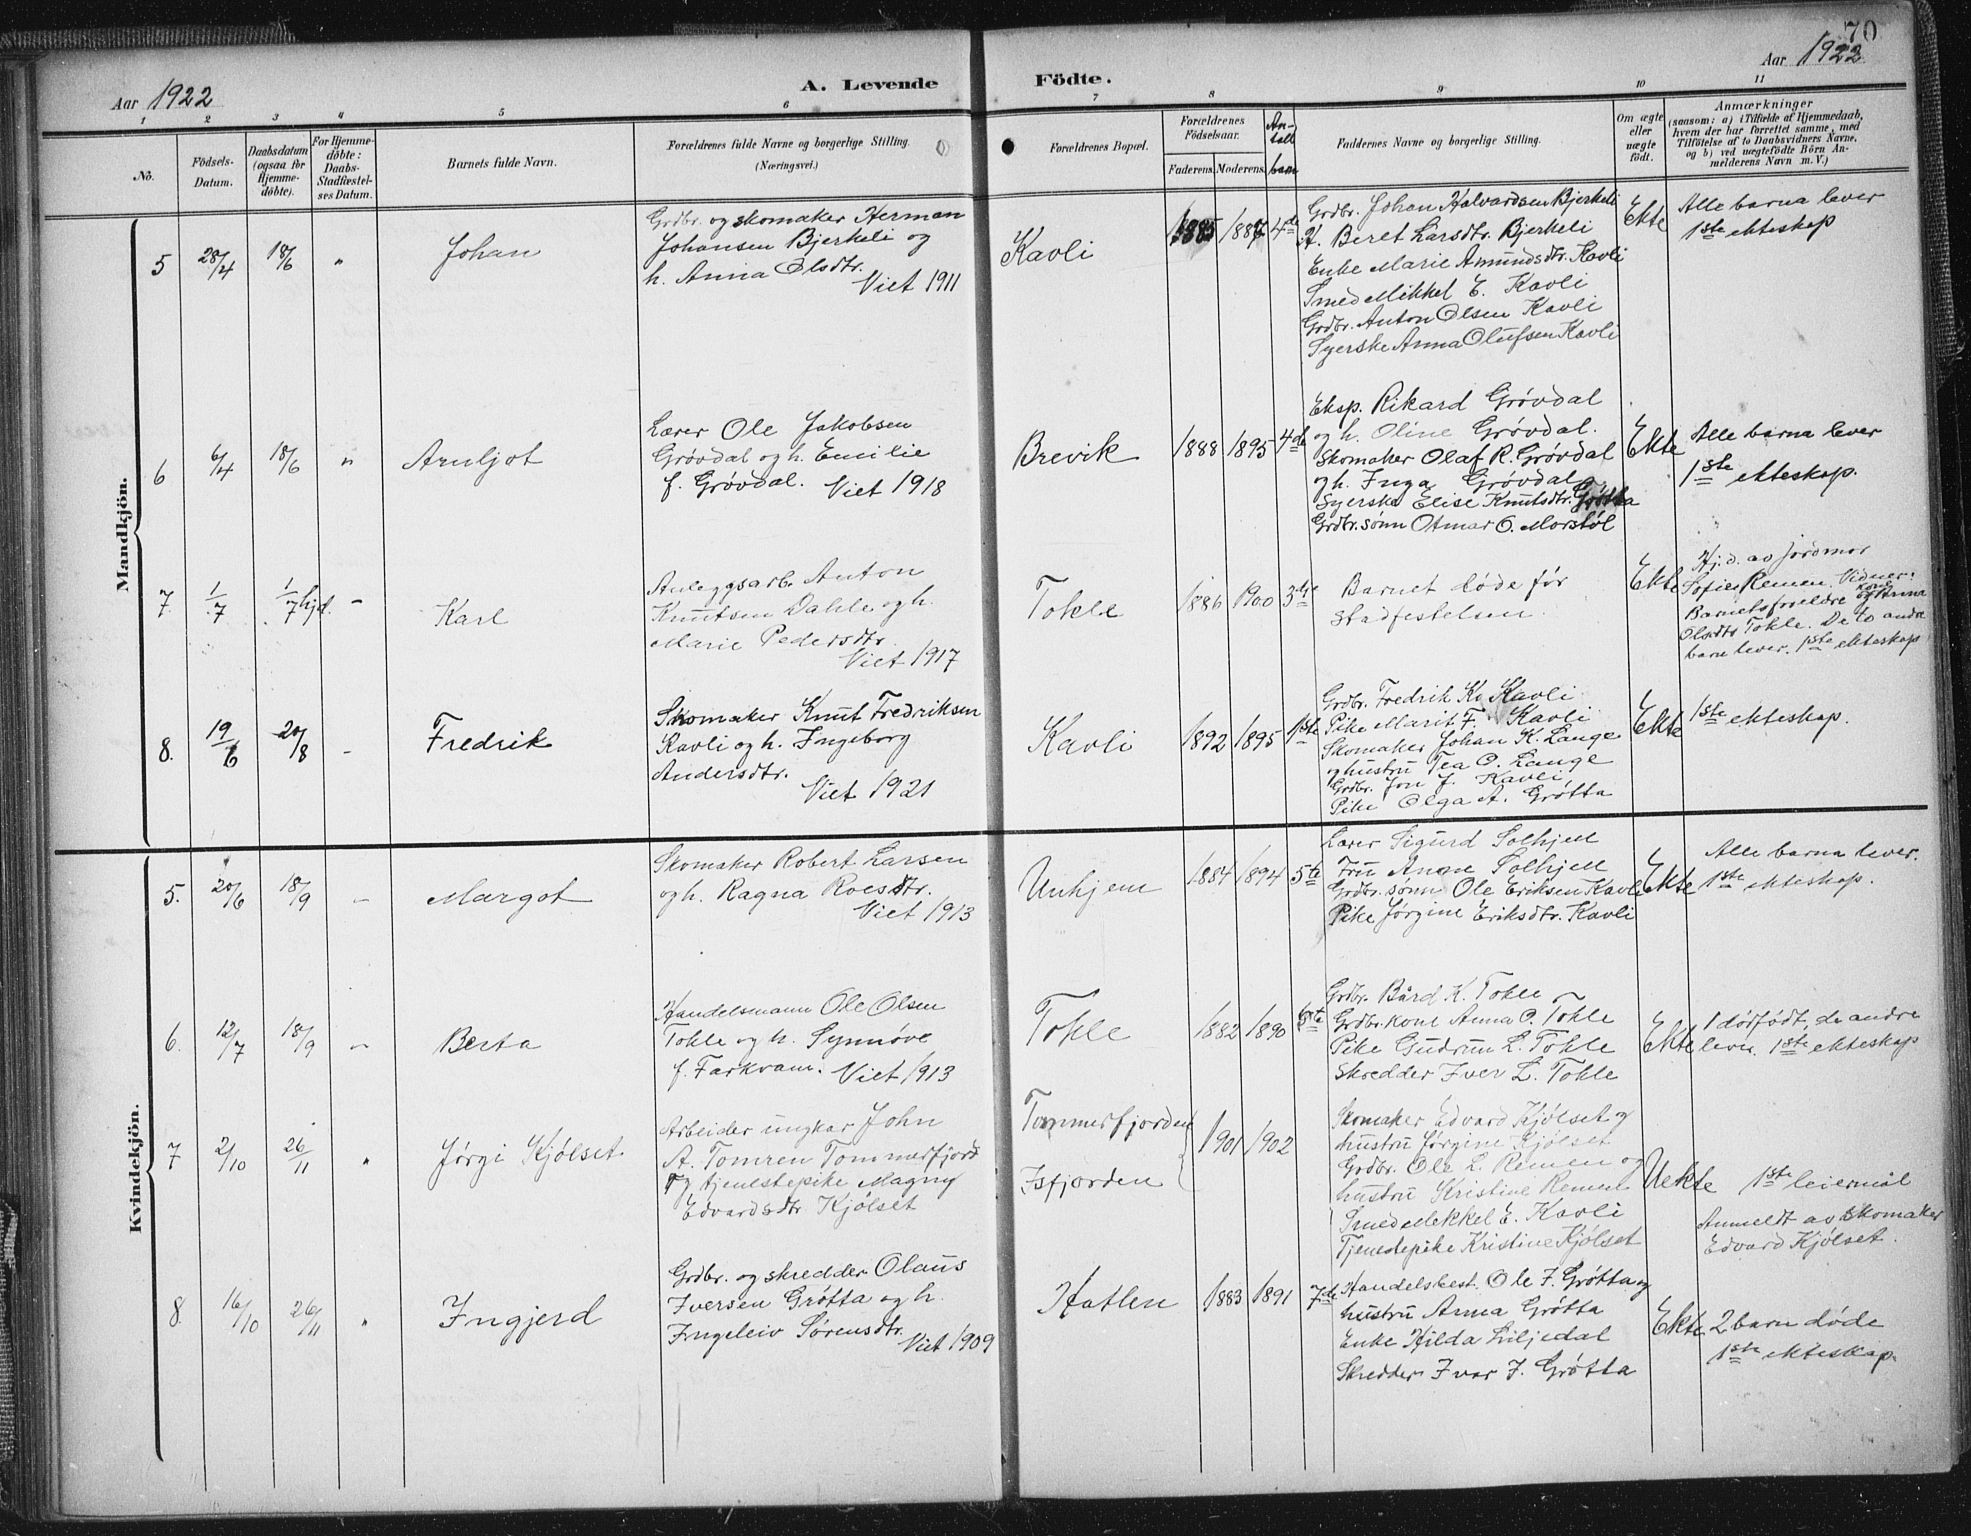 70
Aar 1922
A. Levende
Födte.
Aar 1922
1 2 3 4 5 6 7 8 9 10 11
No.
Födsels-Datum.
Daabsdatum (ogsaa for Hjemme-döbte).
For Hjemme-döbte: Daabs-Stadfæstel-ses Datum.
Barnets fulde Navn.
Forældrenes fulde Navne og borgerlige Stilling.
(Næringsvei.)
Forældrenes Bopæl.
Forældrenes Födselsaar.
Faderens. Moderens.
Antall barn
Faddernes Navne og borgerlige Stilling.
Om ægte eller uægte født.
Anmærkninger
(saasom: a) i Tilfælde af Hjemmedaab,
hvem der har forrettet samme, med
Tilföielse af to Daabsvidners Navne,
og b) ved uægtefödte Börn An-
melderens Navn m. V.)
Mandkjön.
5 28/4 18/6 " Johan
Grdbr. og skomaker Herman
Johansen Bjerkeli og
h. Anna Olsdtr.
Viet 1911
Kavli
1885 1887 4de
Grdbr. Johan Halvardsen Bjerkeli
H. Beret Larsdtr. Bjerkeli
Enke Marie Amundsdtr. Kavli
Smed Mikkel E. Kavli
Grdbr. Anton Olsen Kavli
Syerske Anna Olufsen Kavli
Ekte
Alle barna lever
1ste ekteskap
6 6/4 18/6 " Arnljot
Lærer Ole Jakobsen
Grøvdal og h. Emilie
f. Grøvdal. Viet 1918
Brevik
1888 1895 4de
Eksp. Rikard Grøvdal
og h. Oline Grøvdal.
Skomaker Olaf R. Grøvdal
og h. Inga Grøvdal
Syerske Elise Knutsdtr. Grøtta
Grdbr. sønn Otmar O. Morstøl
Ekte
Alle barna lever
1ste ekteskap.
7. 1/7 1/7 hjd. - Karl
Anleggsarb. Anton
Knutsen Dahle og h.
Marie Pedersdtr.
Viet 1917
Tokle
1886 1900 3dje
Barnet døde før
stadfestelsen
Ekte
Hj. d. av jordmor
Sofie Remen. Vidner:
Barnets foreldre og kone Anna
Olsdtr Tokle. De to andre
barn lever. 1ste ekteskap
8. 19/6 20/8 - Fredrik
Skomaker Knut Fredriksen
Kavli og h. Ingeborg
Andersdtr.
Viet 1921
Kavli
1892 1895 1ste
Grdbr. Fredrik K. Kavli
Pike Marit F. Kavli
Skomaker Johan K. Lange
og hustru Tea O. Lange
Grdbr. Jon J. Kavli
Pike Olga A. Grøtta
Ekte
1ste ekteskap.
Kvindekjön.
5. 20/6 18/9 - Margot
Skomaker Robert Larsen
og h. Ragna Roesdtr.
Viet 1913
Unhjem
1884 1894 5te
Lærer Sigurd Solhjell
Fru Anne Solhjell
Grdbr. sønn Ole Eriksen Kavli
Pike Jørgine Eriksdtr. Kavli
Ekte
Alle barna lever.
1ste ekteskap.
6. 12/7 18/9 - Berta
Handelsmann Ole Olsen
Tokle og h. Synnøve
f. Farkvam. Viet 1913
Tokle
1882 1890 6te
Grdbr. Bård K. Tokle
Grdbr. kone Anna O. Tokle
Pike Gudrun L. Tokle
Skredder Iver L. Tokle
Ekte
1 dødfødt, de andre
lever. 1ste ekteskap
7 2/10 26/11 " Jørgi Kjølset
Arbeider ungkar John
A. Tomren Tommerfjord
og tjenestepike Magny
Edvardsdtr Kjølset
Tommerfjorden
Isfjorden
1901 1902
Skomaker Edvard Kjølset og
hustru Jørgine Kjølset
Grdbr. Ole L. Remen og
hustru Kristine Remen
Smed Mekkel E. Kavli
Tjenestepike Kristine Kjølset
Uekte
1ste leiermål
Anmeldt av skomaker
Edvard Kjølset.
8. 16/10 26/11 " Ingjerd
Grdbr. og skredder Olaus
Iversen Grøtta og h.
Ingeleiv Sørensdtr.
Viet 1909
Hatlen
1883 1891 7de
Handelsbest. Ole I. Grøtta og
hustru Anna Grøtta
Enke Hilda Liljedal
Skredder Ivar I. Grøtta
Ekte
2 barn døde
1ste ekteskap.